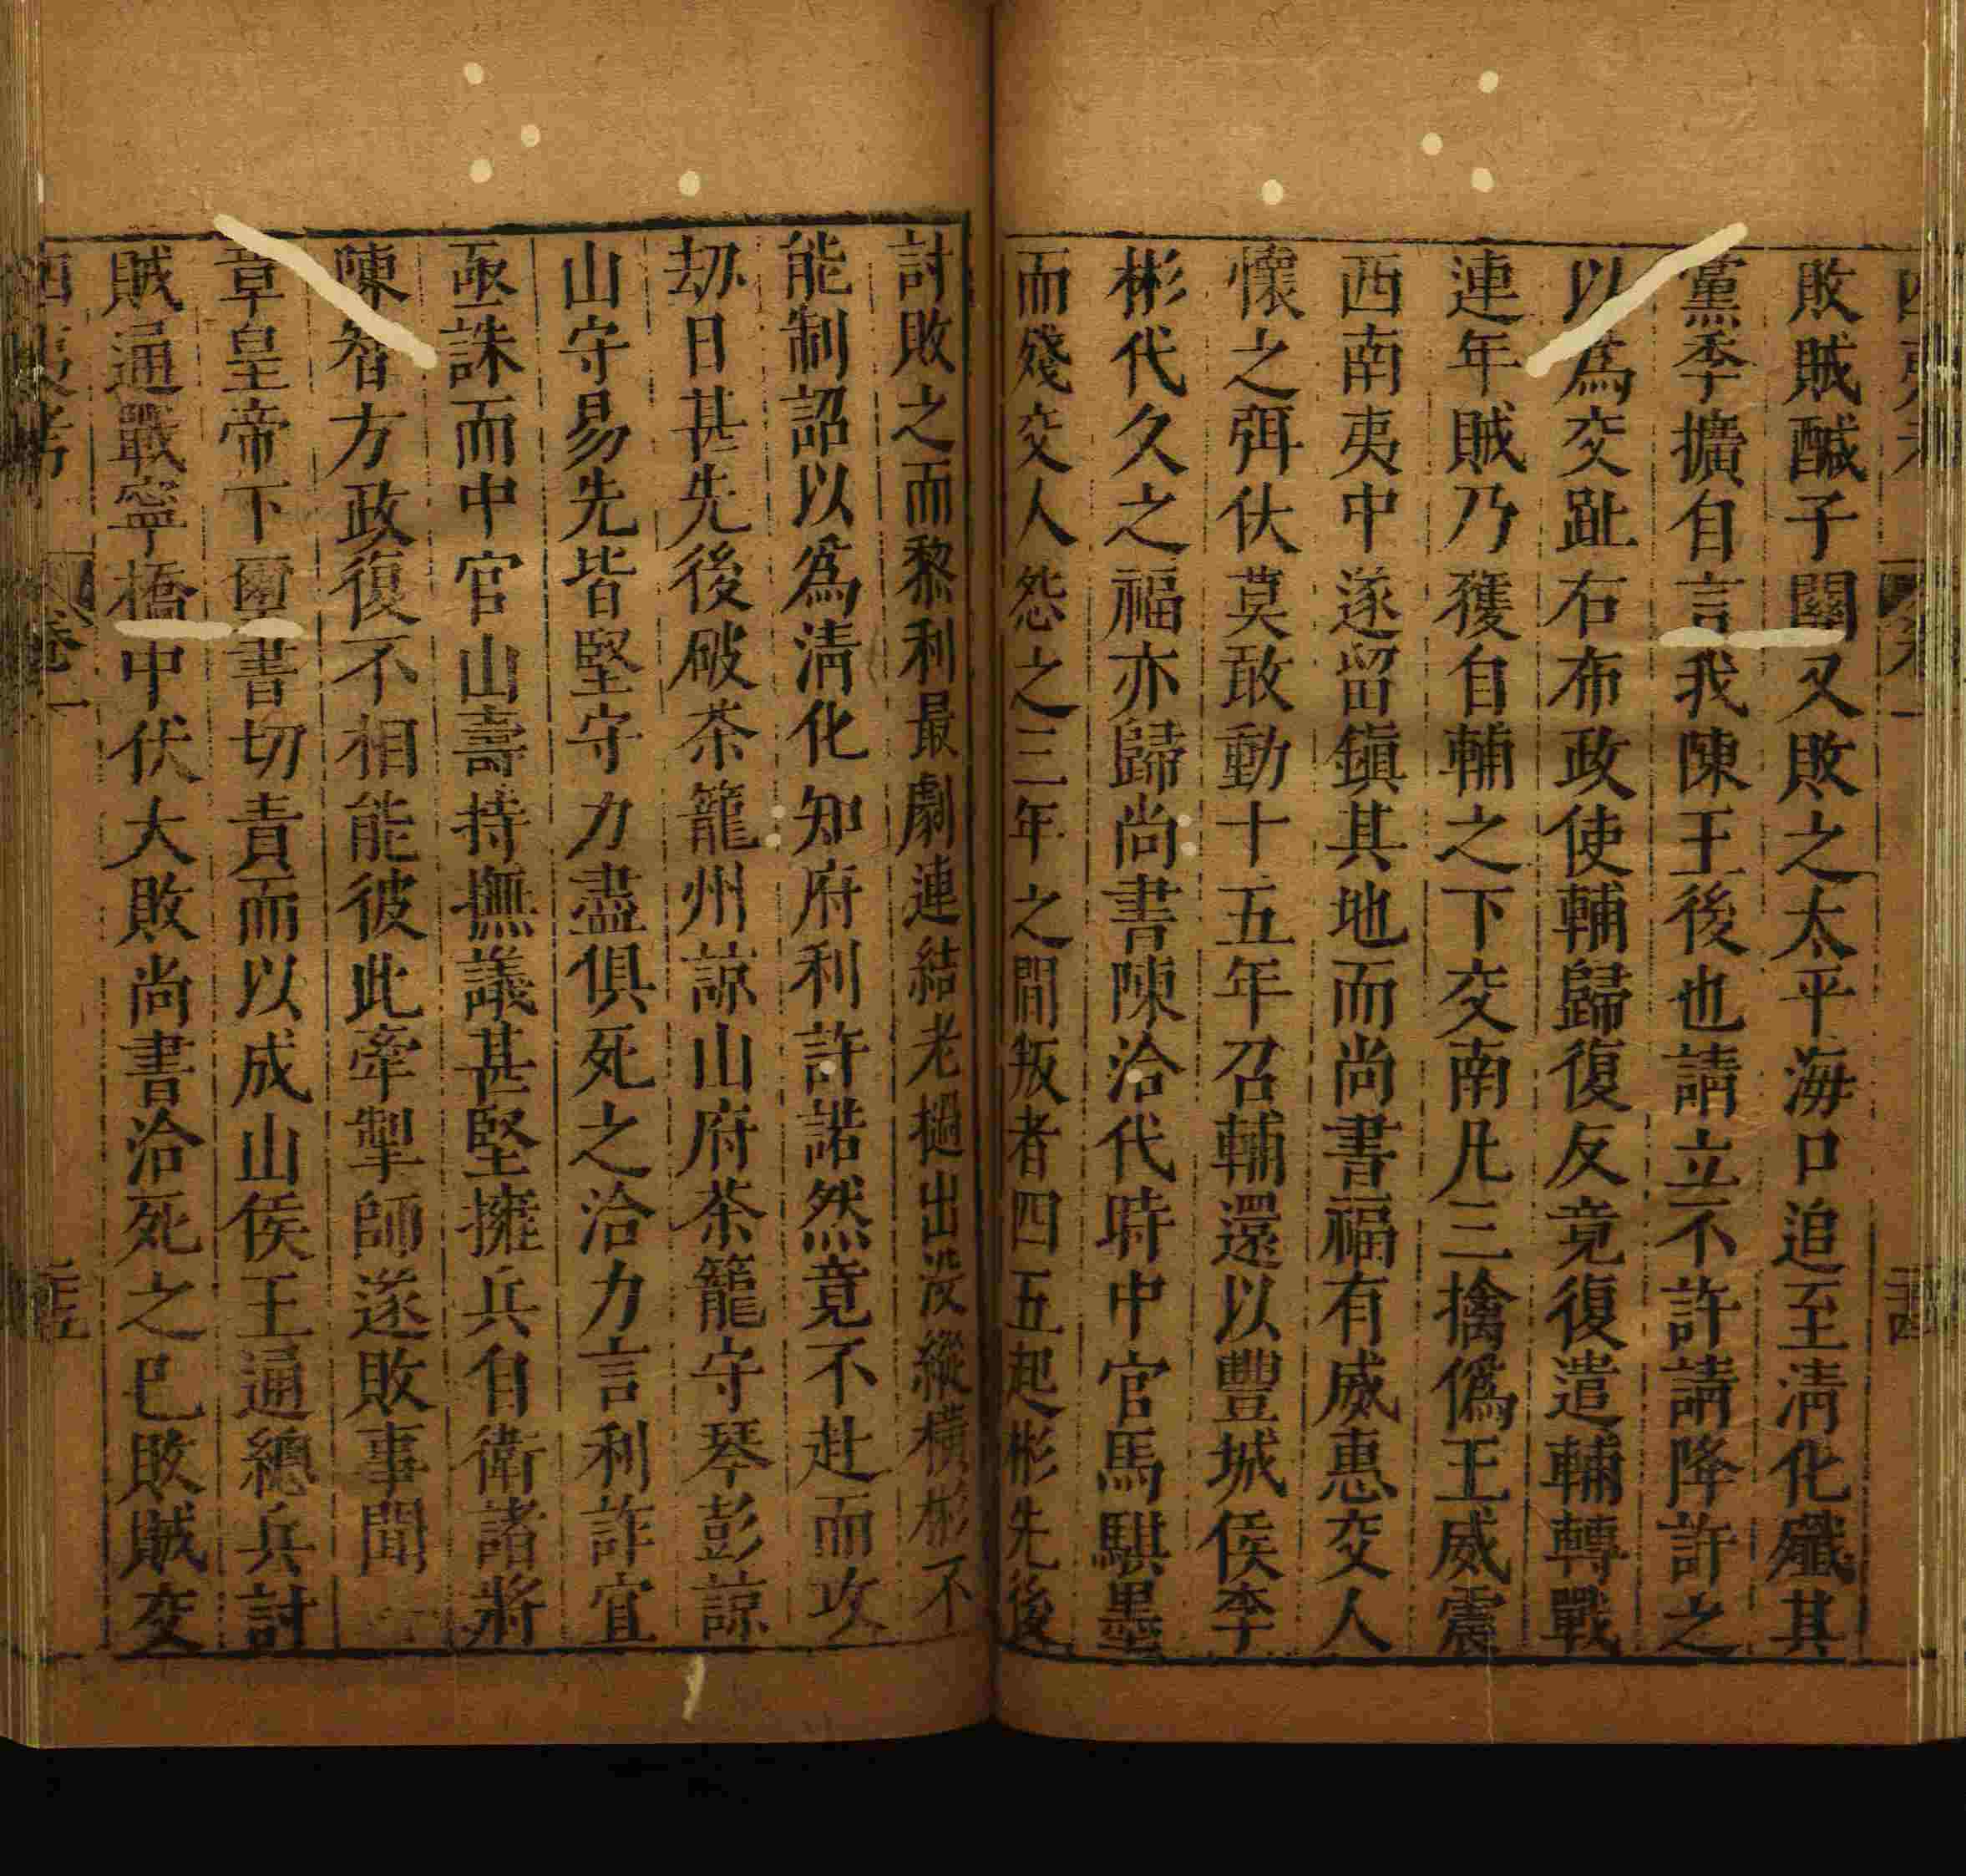 敗賊醎子關又敗之太平海口追至淸化殲其
黨季擴自言我陳王後也請立不許請降許之
以爲交趾右布政使輔歸復反竟復遣輔轉戰
連年賊乃獲自輔之下交南凡三擒僞王威震
西南夷中遂留鎭其地而尚書福有威惠交人
懷之弭伏莫敢動十五年召輔還以豐城侯李
彬代久之福亦歸尚書陳洽代時中官馬騏墨
而殘交人怨之三年之間叛者四五起彬先後
討敗之而黎利最劇連結老撾出没縱橫彬不
能制詔以爲淸化知府利許諾然竟不赴而攻
刼日甚先後破茶籠州諒山府茶籠守琴彭諒
山守易先皆堅守力盡俱死之洽力言利詐宜
亟誅而中官山壽持撫議甚堅擁兵自衛諸將
陳智方政復不相能彼此牽掣師遂敗事聞
章皇帝下璽書切責而以成山侯王通總兵討
賊通戰寧橋中伏大敗尚書洽死之巳敗賊交
四夷考
卷一